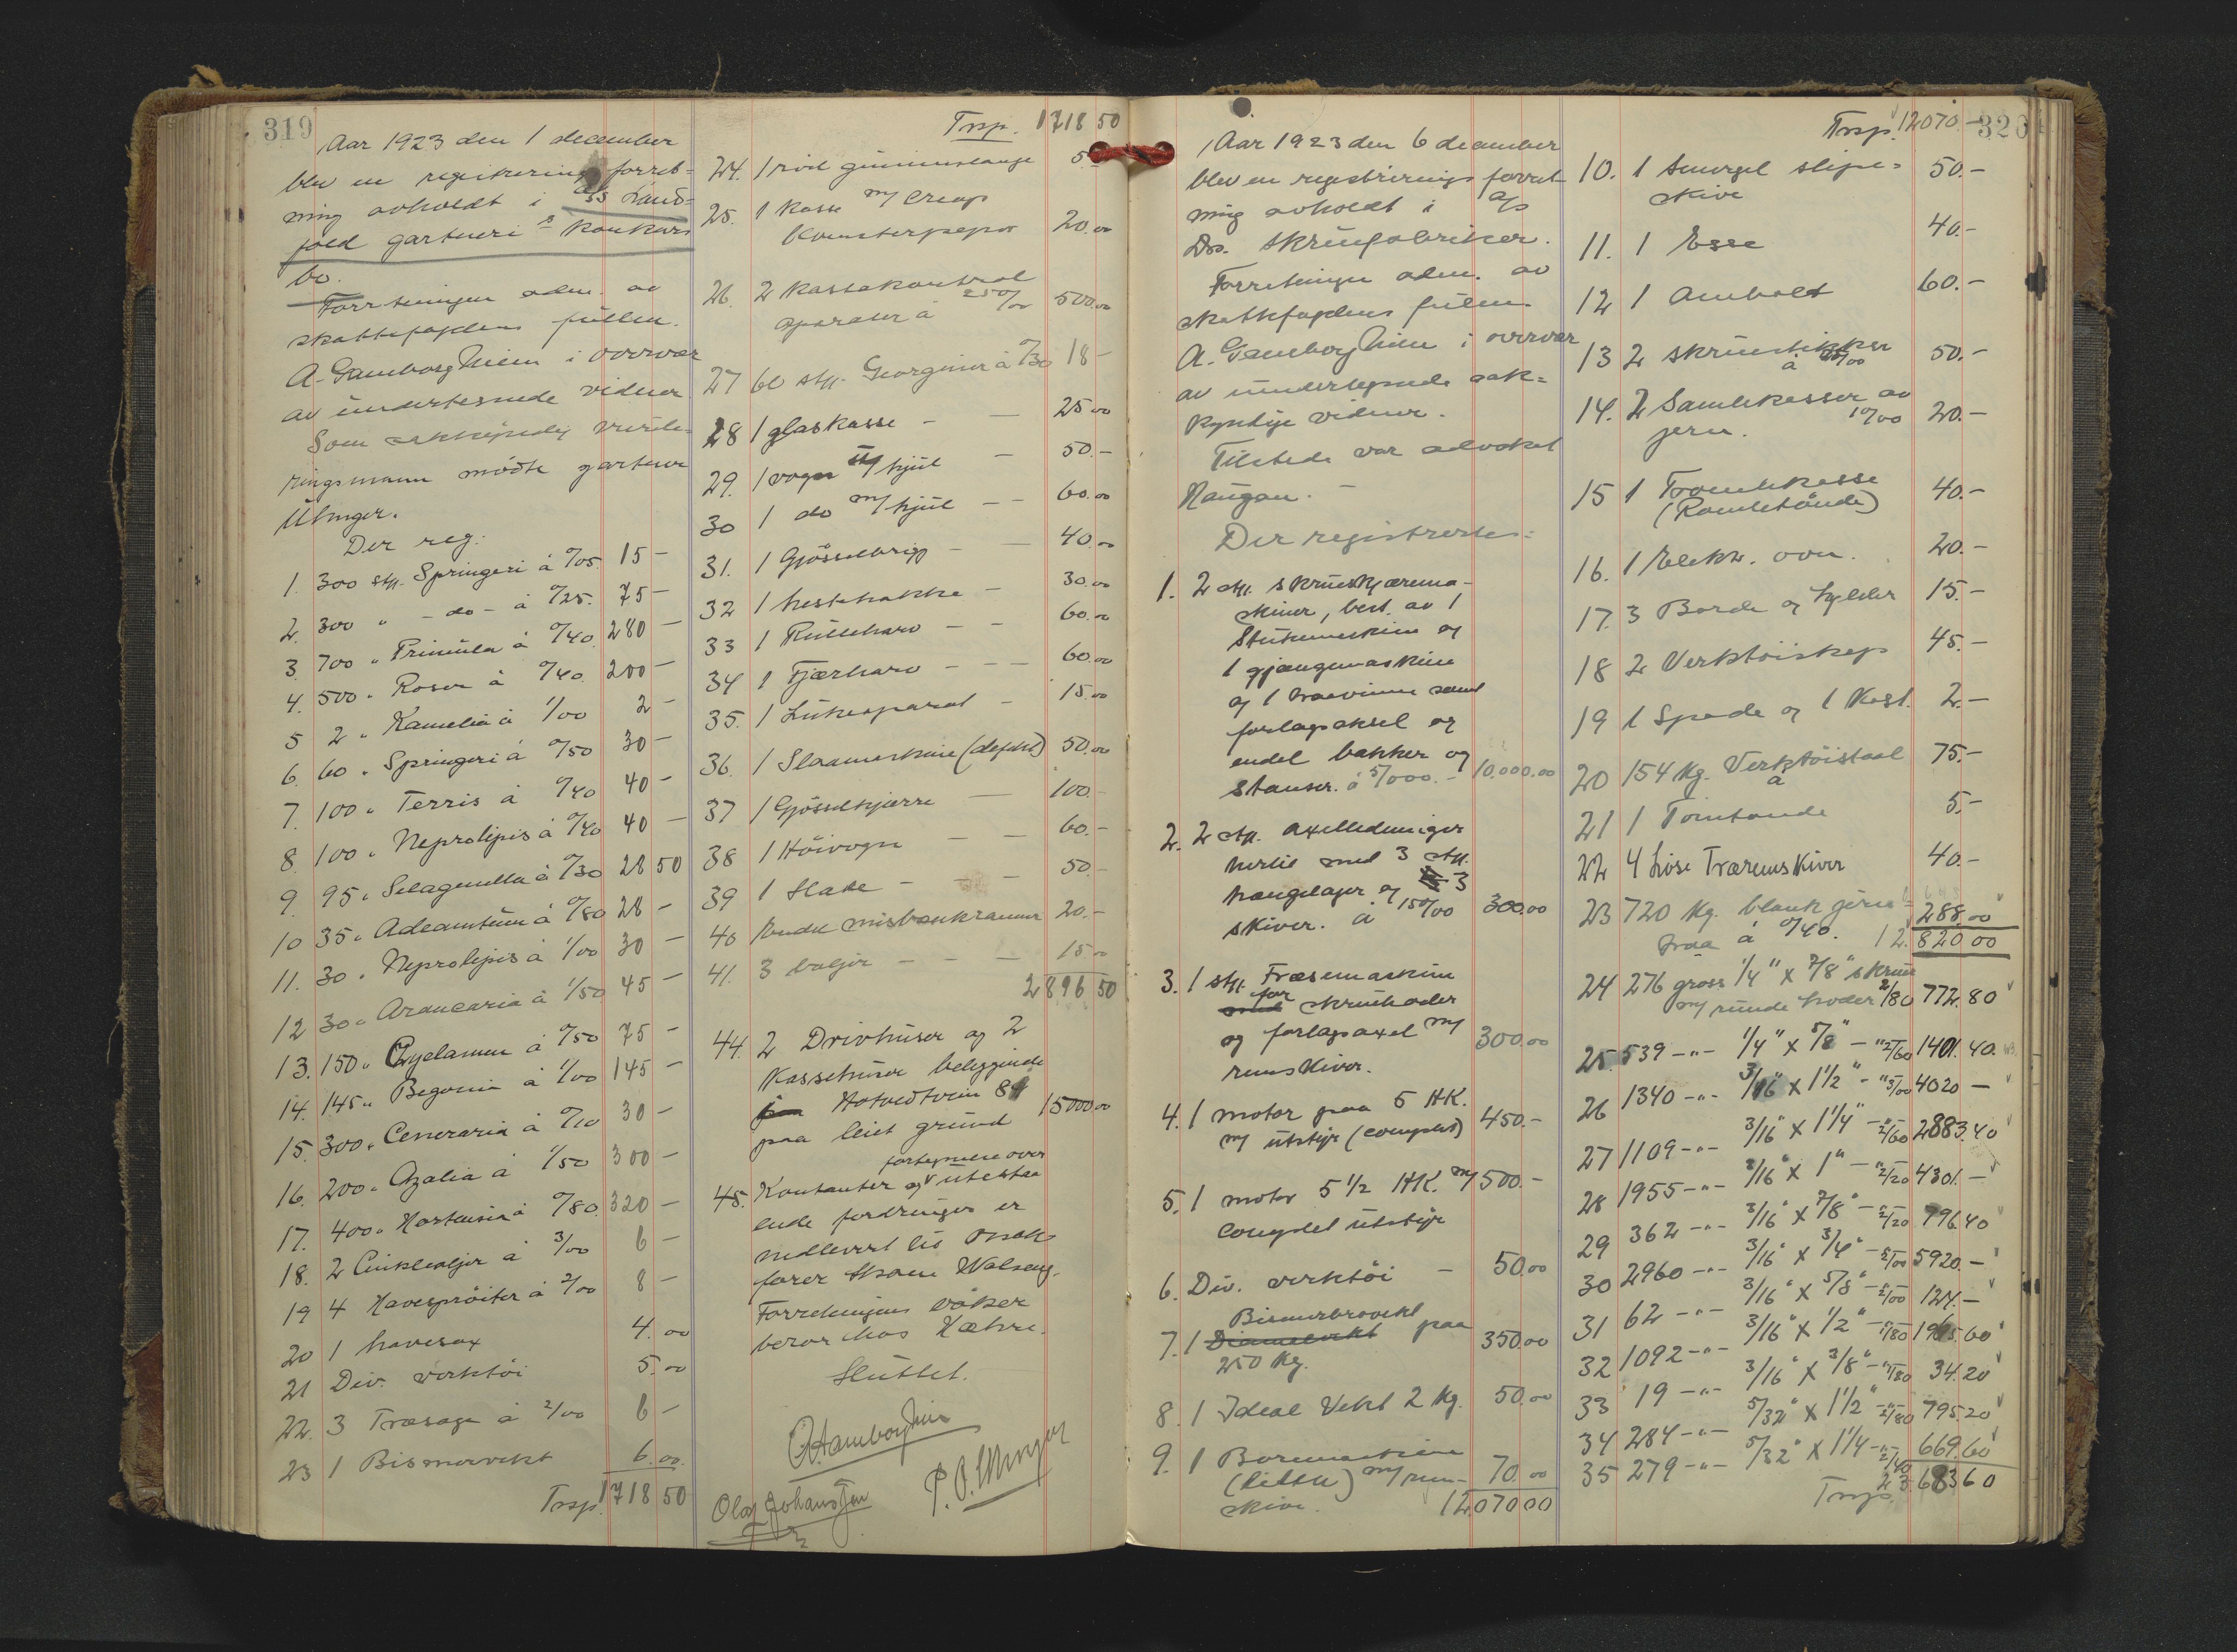 319
Aar 1923 den 1 december
blev en registrerings forret-
ning avholdt i A/S Land-
fald gartneri s konkurs
bo.
Forretningen adm. av
skattefogdens fuldm.
A. Gamborg Nielsen i overvær
av undertegnede vidner
Som sakkyndig vurde-
ringsmann mødte gartner
Ulinger.
Der reg:
1. 300 stk. Springeri à 0/05 15 -
2. 300 " - do - à 0/25. 75 -
3. 700 " Primula à 0/40. 280 -
4. 500 " Roser à 0/40. 200 -
5 2 " Kamelia à 1/00 2 -
6. 60 " Springeri à 0/50 30 -
7. 100 " Terris à 0/40 40 -
8. 100 " Neprolipis à 0/40 40 -
9. 95 " Selaginella à 0/30 28 50
10 35 " Adeamtum à 0/80 28 -
11. 30 " Neprolipis à 1/00 30 -
12 30 " Araucaria à 1/50 45 -
13. 150 " Cyclamen à 0/50 75 -
14. 145 " Begonia à 1/00 145 -
15. 300 " Ceneraria à 0/10 30 -
16. 200 " Azalia à 1/50 300 -
17. 400 " Hortensia à 0/80. 320 -
18. 2 Sinkbaljer à 3/00 6 -
19 4 Havesprøiter à 2/00 8 -
20 1 havesax 4.00
21 Div. verktøi 5.00
22. 3 Træsage à 2/00 6 -
23 1 Bismervekt 6.00.
Trsp. 1718 50
Trsp. 1718 50
24. 1 rød gummislange 5.-
25. 1 kasse m/ creap
blomsterpapir 20.00
26. 2 kassakontrol
aparater à 250/00 500.00
27 60 stk. Georginer à 0/30 18 -
28 1 glaskasse - - 25.00
29. 1 vogn u/ hjul - 50.-
30 1 do m/ hjul - - 60.00
31. 1 Gjødselbrip - - 40.00
32 1 hestehakke - 30.00
33 1 Rulleharv - - 60.00
34 1 Fjærharv - - - 60.00
35. 1 Lukeaparat - 15.00
36. 1 Slaamaskine (defekt) 50.00
37 1 Gjødselkjærre - 100.-
38 1 Høivogn - - 60.-
39 1 Slæde - - - 50.-
40 endel misbænkrammer 20.-
41. 3 baljer - - - 15.00
2896 50
44. 2 Drivhuser og 2
Kassehuser beliggende
Hotvedtvein 81
paa leiet grund 15000.00
45. Kontanter og fortegnelse over utestaa
ende fordringer er
nedlevert til oversak-
fører Thorn Walseng.
Forretningens bøker
beror hos Hæhre.
Sluttet.
A. Gamborg Nielsen
Olaf Johansen
P. O. Ulinger
Aar 1923 den 6 december
blev en registrerings forret-
ning avholdt i A/S
Drs. Skruefabriker.
Forretningen adm. av
skattefogdens fuldm
A. Gamborg Nielsen i overvær
av undertegnede sak-
kyndige vidner.
Tilstede var advokat
Haugan. -
Der registrertes:
1. 2 stk. skrueskjærema-
skiner, best. av 1
Stukemaskine og
1 gjængemaskine
og 1 traavinne samt
forlagsaksel og
endel bakker og
Stanser. à 5/000.- 10,000.00
2. 2 stk. axelledninger
hertil med 3 stk.
hængelager og 3
skiver. à 150/00 300.00
3. 1 stk. Fræsemaskine
for skruehoder
og forlagsaxel m/
remskiver. 300.00
4. 1 motor paa 5 HK.
m/ utstyr (complet) 450.-
5. 1 motor 5 1/2 HK. m/ 500.-
complet utstyr
6. Div. verktøi - 50.00
7. 1 Bismerbrovekt paa
250 kg. 350.00
8. 1 Ideal Vekt 2 kg. 50.00
9. 1 Boremaskine
(liten) m/ rem- 70.00
skive.
12,070 00
320
Trsp. 12070.-
10. 1 Smergel slipe- 50.-
skive
11. 1 Esse 40.-
12 1 Ambolt 60.-
13 2 skruestikker
à 25/00 50.-
14. 2 Samlekasser av
jern. 10/00 20.-
15 1 Tromlekasse
(Romletønde) 40.-
16. 1 Elektr. ovn. 20.-
17. 3 Borde og hylder 15.-
18 2 Verktøiskap 45.-
19 1 Spade og 1 Kost. 2.-
20 154 kg. Verktøistaal
à 75.-
21 1 Tomtønde 5.-
22 4 Løse Træremskiver 40.-
23 720 kg. blank jern-
traa à 0/40. 288.00
12.820 00
24 276 gross 1/4" x 7/8" skruer
m/ runde hoder 2/80 772.80
25. 539 -"- 1/4" x 5/8" - " 2/60 1401.40.
26 1340 -"- 3/16" x 1 1/2" - " 3/00 4020 -
27 1109 -"- 3/16" x 1 1/4" - " 2/60 2883.40
28 1955 -"- 3/16" x 1" - " 2/20 4301.-
29 362 -"- 3/16" x 7/8" - " 2/20 796.40
30 2960 -"- 3/16" x 3/4" - " 2/00 5920.-
31 62 -"- 3/16" x 5/8" - " 2/00 124.-
32 1092 -"- 3/16" x 1/2" - " 1/80 1965.60
33 19 -"- 3/16" x 3/8" - " 1/80 34.20
34 284 -"- 5/32" x 1 1/2" - " 2/80 795.20
35 279 -"- 5/32" x 1 1/4 - " 2/40 669.60
Trsp. 23.683 60